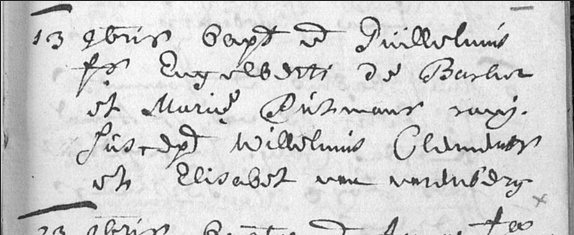 13 9bris bapt est Guillelmus
fs Engelberti de Backer
et Mariæ Putmans conj.
suscept Willelmus Clement
et Elisabet van
23 9bris